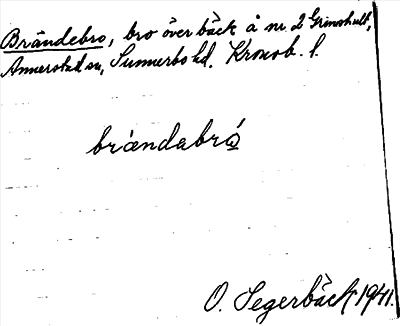 Brändebro, bro över bäck å nr. 2 Grimshult,
Annerstad sn, Sunnerbo hd. Kronob. l.
brǻndabrå̲
O. Segerbäck 1941.